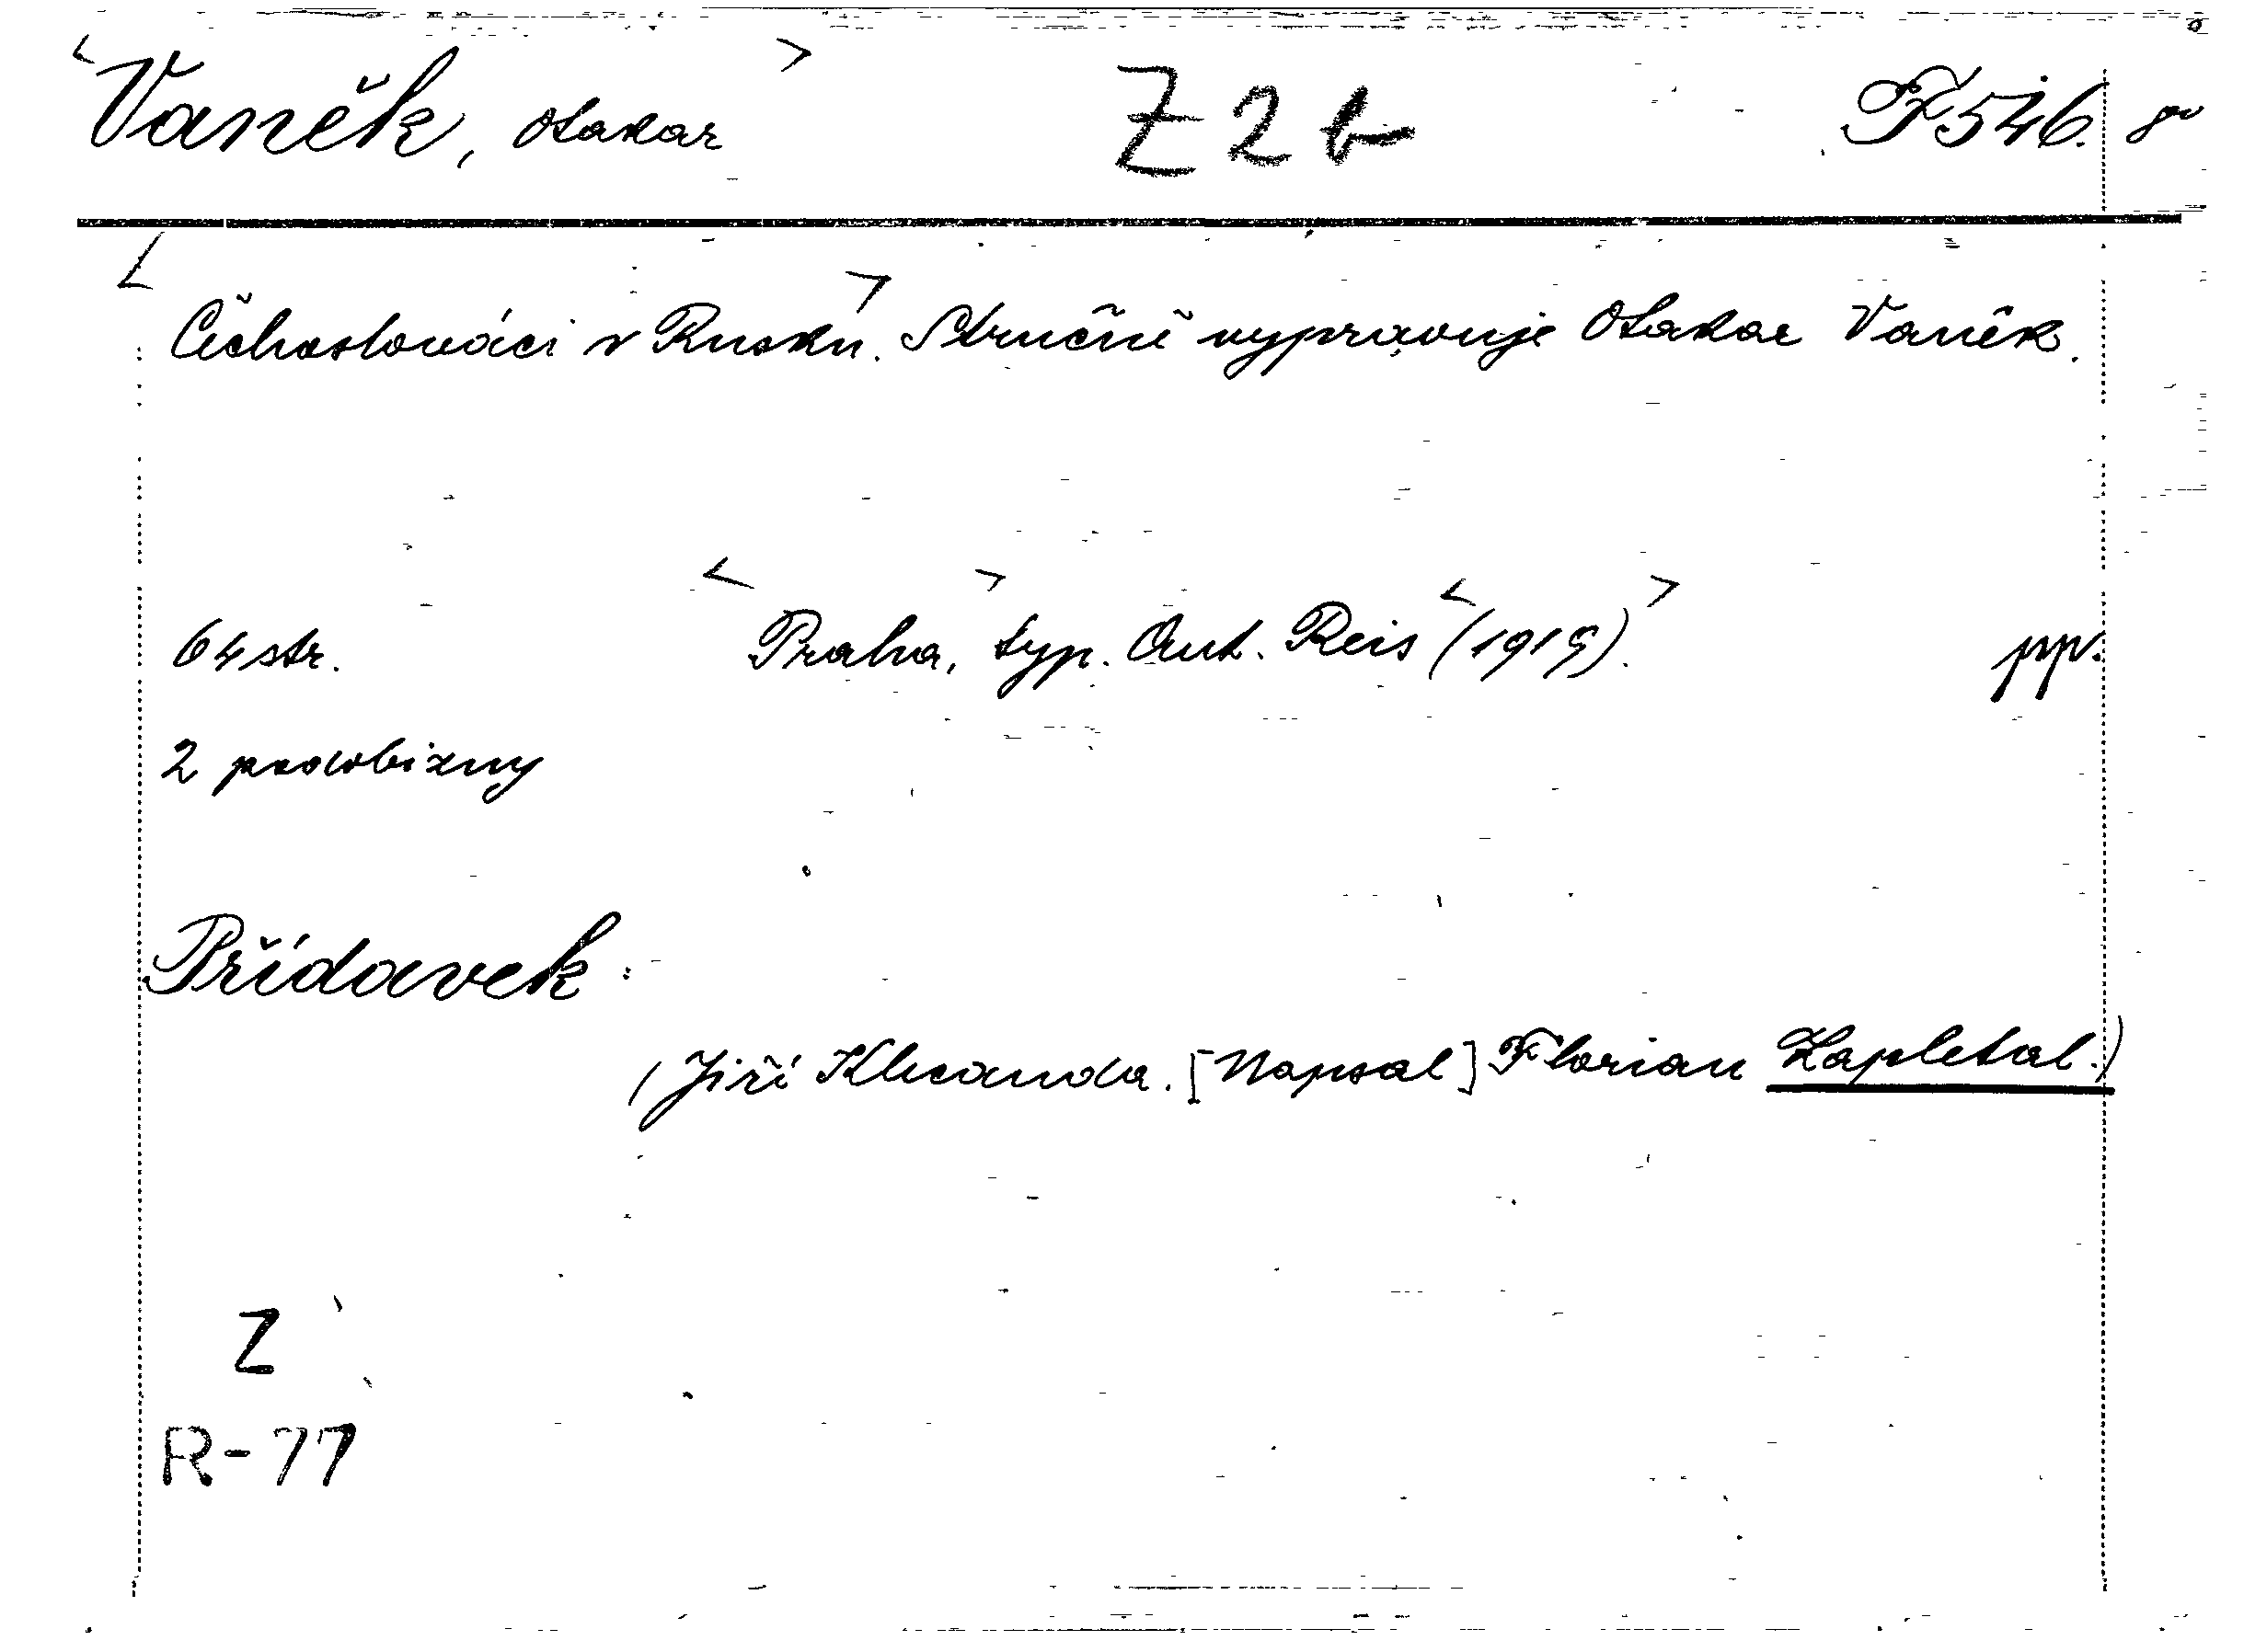 <Vaněk, Otakar> Z 2 b F 546. 8°
<Čechoslováci v Rusku>. Stručně vypravuje Otakar Vaněk.
64 str. <Praha,> typ. Ant. Reis <(1919)>. pp.
2 podobizny
Přídavek:
(Jiří Klecanda. [Napsal] Florian Zapletal.)
Z
R-77